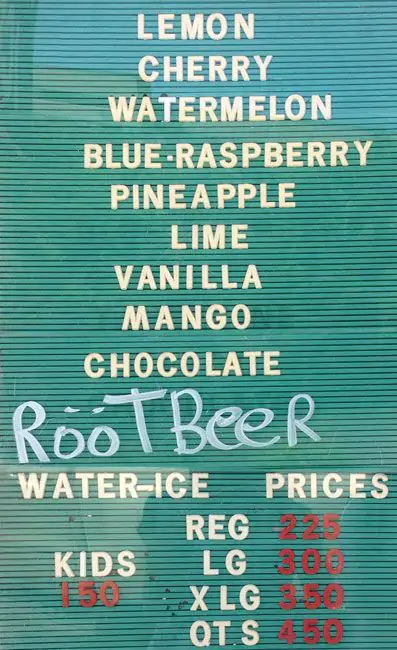 LEMON
CHERRY
WATERMELON
BLUE·RASPBERRY
PINEAPPLE
LIME
VANILLA
MANGO
CHOCOLATE
RööTBEER
WATER-ICE PRICES
REG 225
KIDS LG 300
150 XLG 350
QTS 450